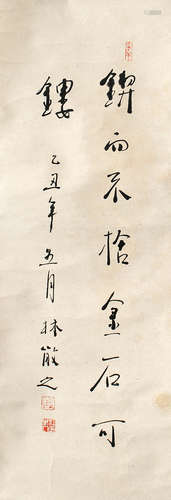 鍥而不捨金石可
鏤
乙丑年五月林散之